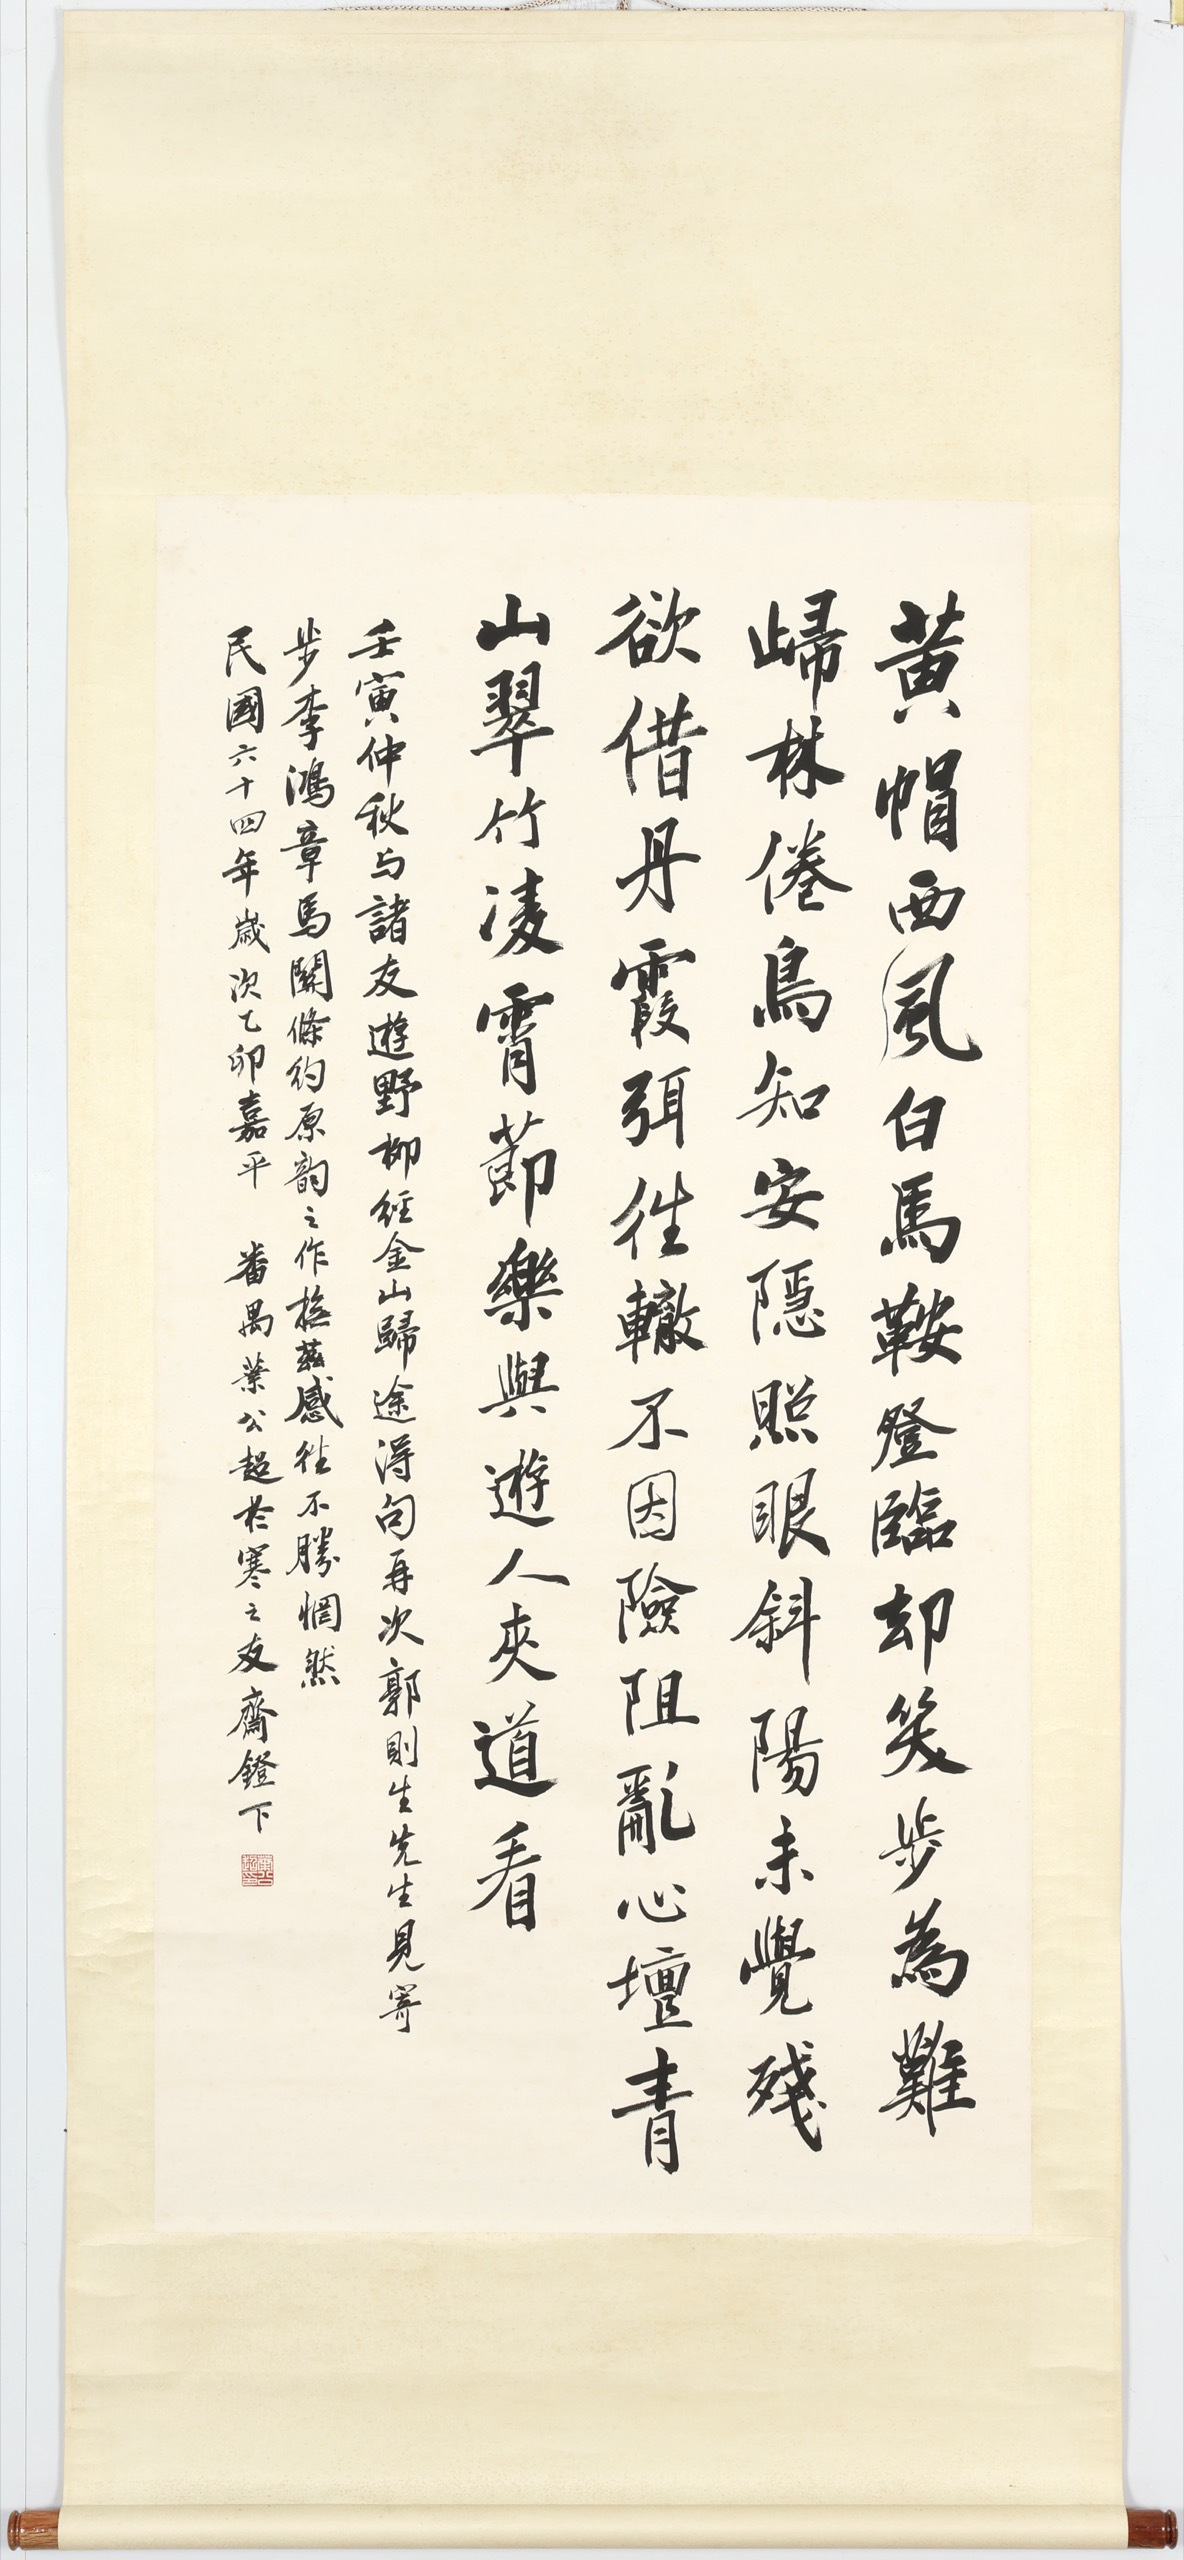 黃帽西風白馬鞍登臨却笑步為難
歸林倦鳥知安隱照眼斜陽未覺殘
欲借丹霞弭往轍不因險阻亂心壇青
山翠竹凌霄節樂與遊人夾道看
壬寅仲秋与諸友遊野柳經金山歸途得句再次郭則生先生見寄
步李鴻章馬關條約原韵之作撫茲感往不勝惘然
民國六十四年歲次乙卯嘉平 番禺葉公超於寒之友齋鐙下
葉公超印